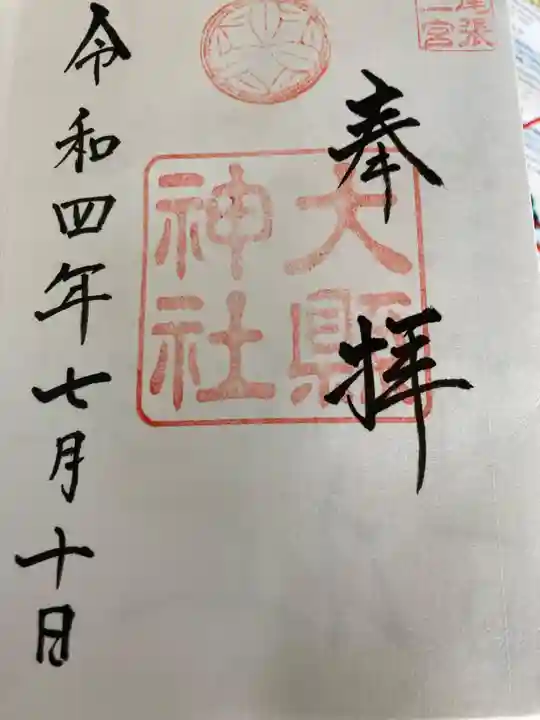 尾張
二宮
奉拝
大縣
神社
令和四年七月十日